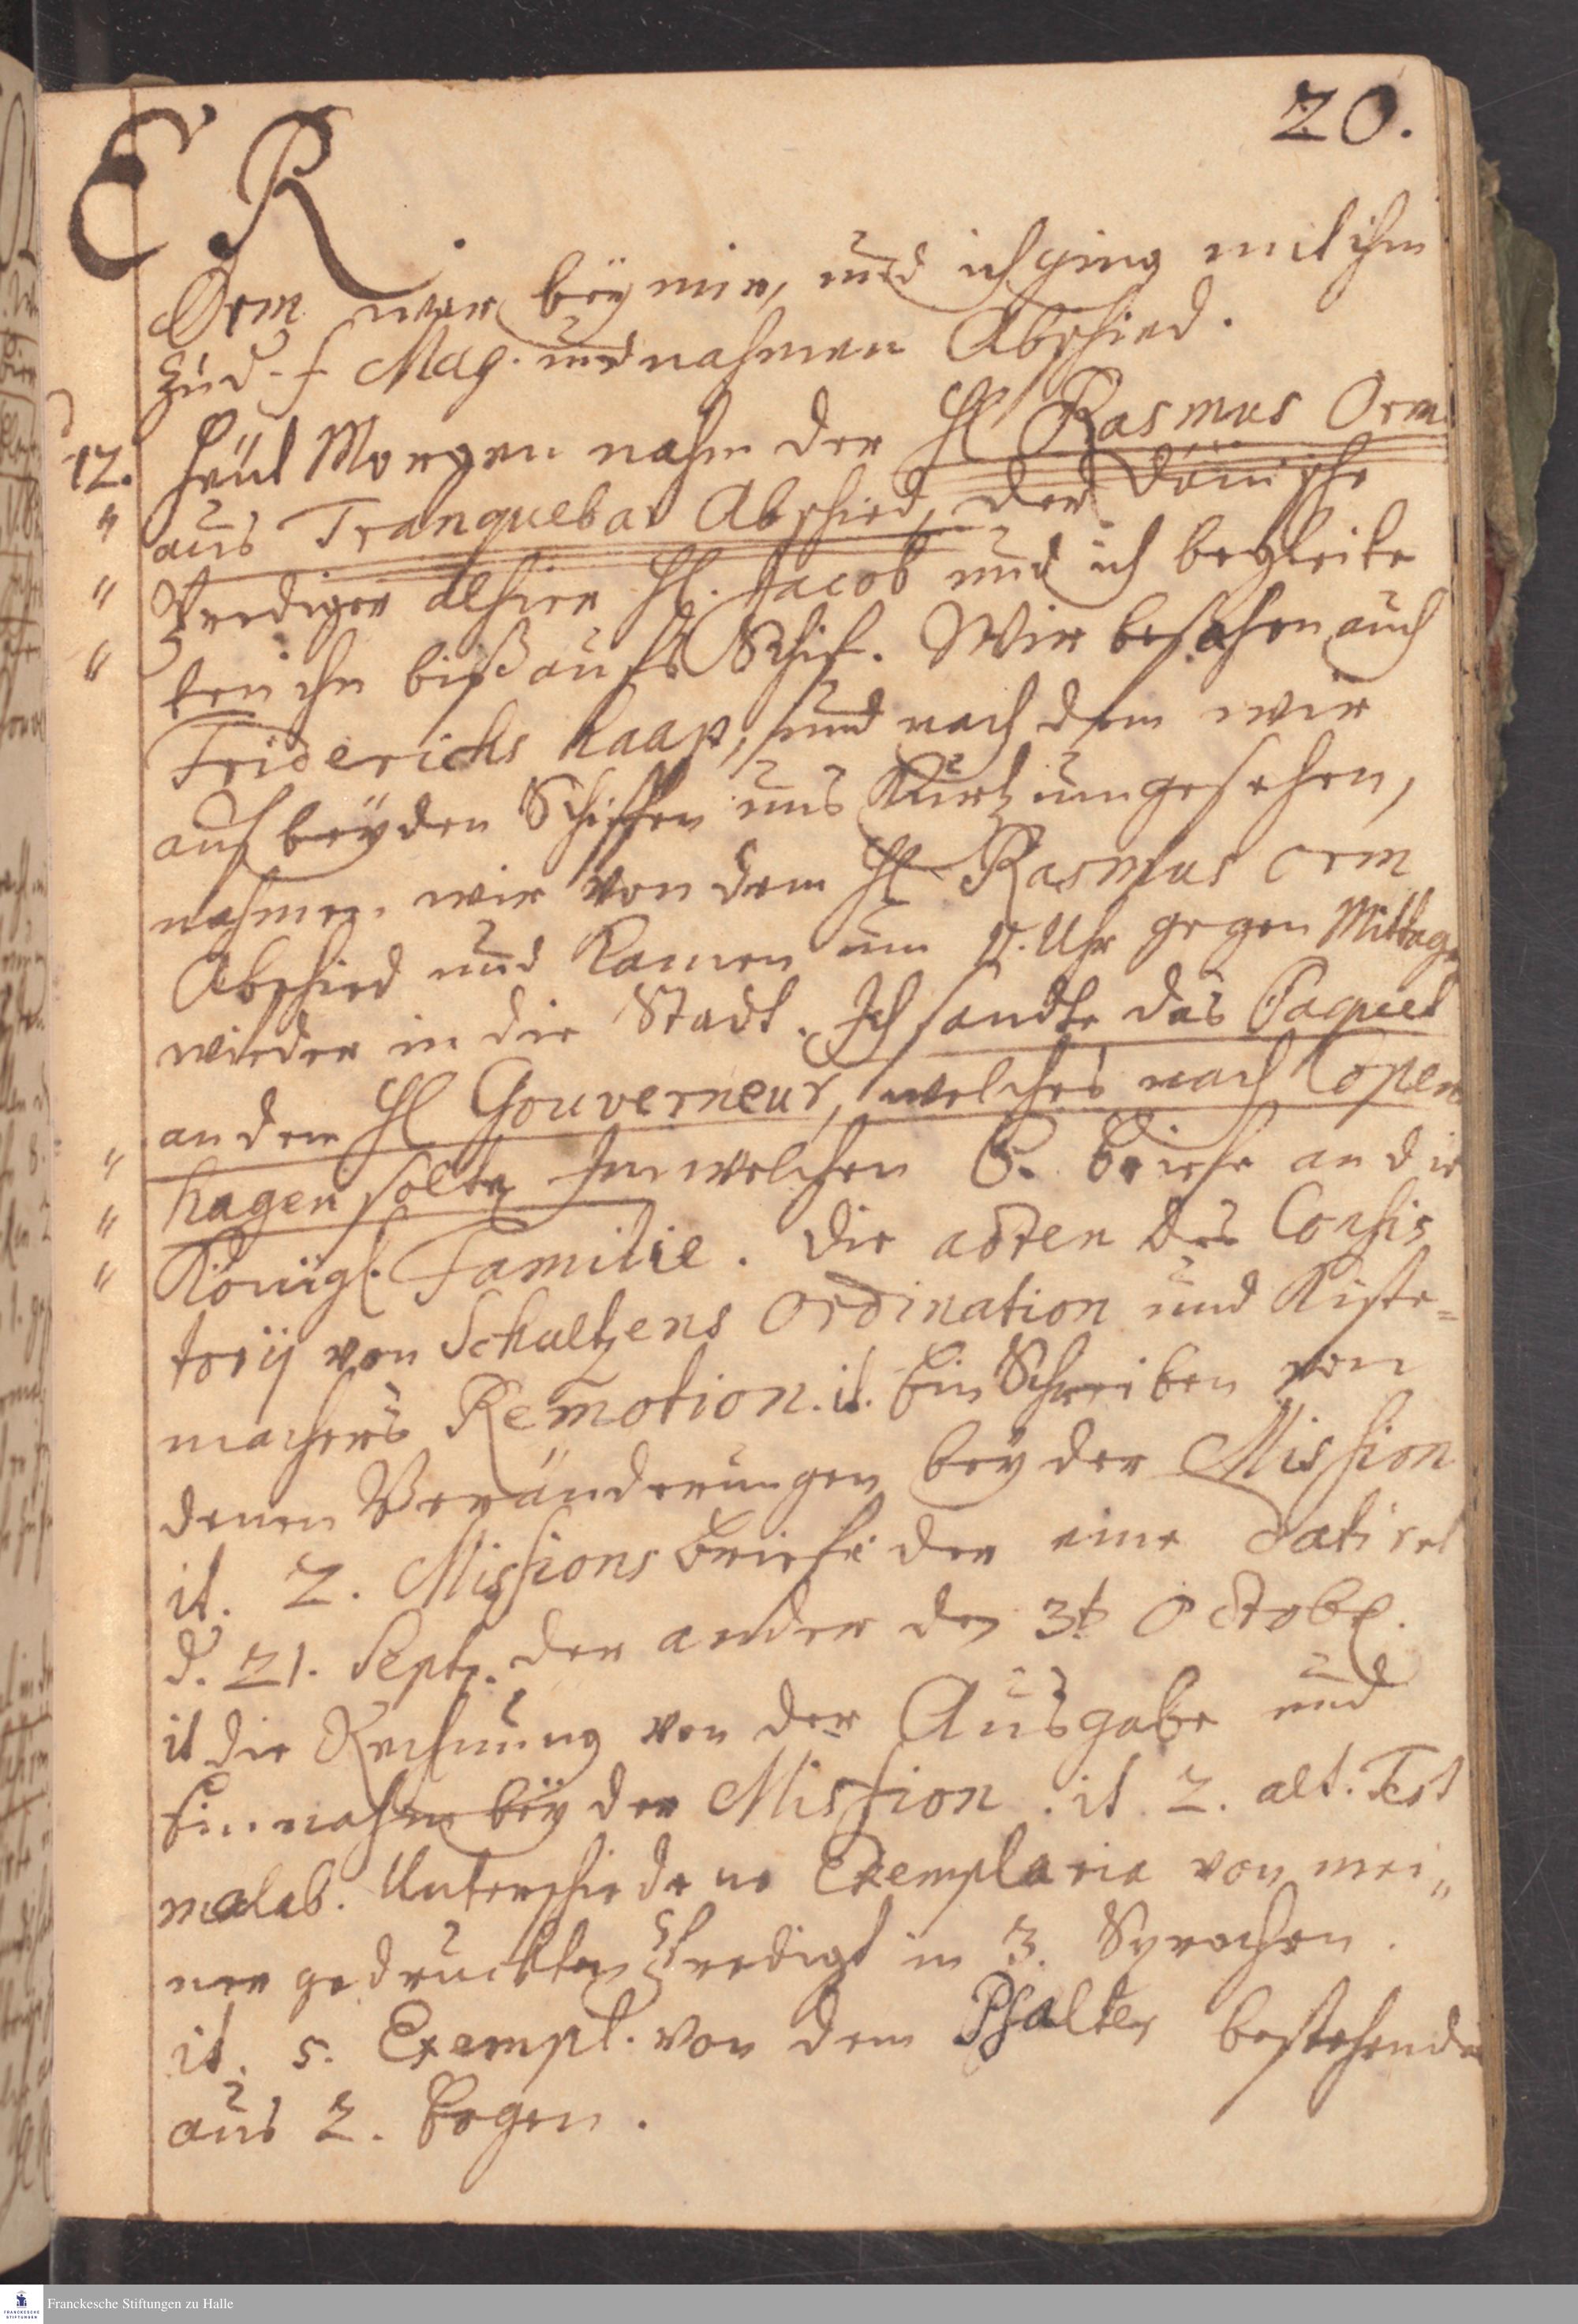 20.
E R.
Orm war beÿ mir, und ich ging mit ihm
zu d. f Mag. und nahmen Abschied.
12. Heut Morgen nahm der H Rasmus Orm
" aus Tranquebar Abschied, der Dänische
" Prediger alhier H. Jacob und ich begleite
" ten ihn biß aufs Schif. Wir besahen auch
Friderichs Kaap, und nach dem wir
auf beÿden Schiffen uns Kurtz umgesehen,
nahmen wir von dem H Rasmus Orm
Abschied und Kamen um 11. Uhr gegen Mittage
wieder in die Stadt. Ich sandte das Paquet
an dem H Gouverneur, welches nach Copen
" hagen solte In welchen 6. briefe an die
" Königl. Familie. Die acten des Consis
" torij von Schultzens Ordination und Kiste=
machers Remotion. it. Ein Schreiben von
denen Veränderungen beÿ der Mission
it. 2. Missions briefe der eine datiret
d. 21. Sept. der ander den 3t Octobr.
it die Rechnung von der Ausgabe und
Einnahm beÿ der Mission. it. 2. alt. Test
malab. Unterschiedene Exemplaria von mei"
ner gedruckten Predigt in 3. Sprachen.
it. 5. Exempl. von dem Psalter bestehende
aus 2. bogen.
Franckesche Stiftungen zu Halle